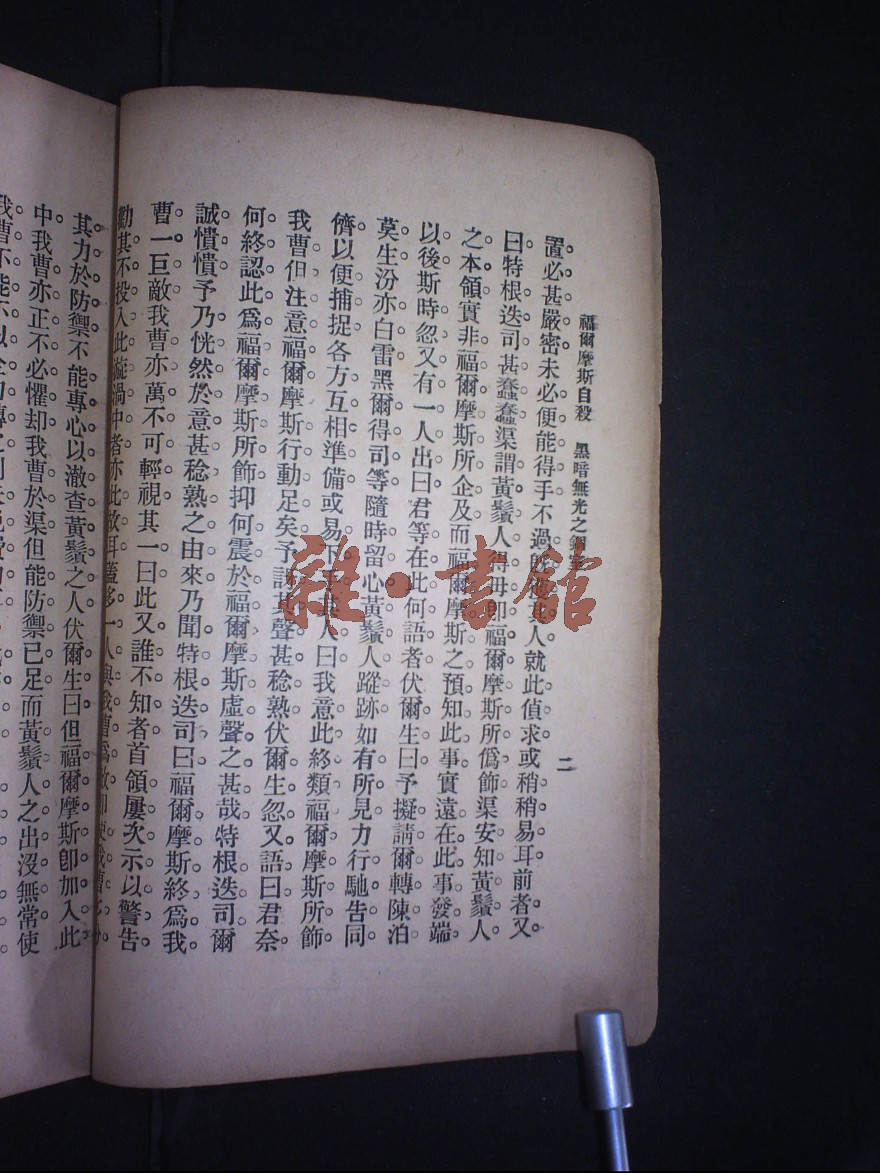 福爾摩斯自殺 黑暗無光之鋼 二
置必甚嚴密未必便能得手不過 其人就此偵求或稍稍易耳前者又
曰特根迭司甚蠢蠢渠謂黃鬚人得毋卽福爾摩斯所僞飾渠安知黃鬚人
之本領實非福爾摩斯所企及而福爾摩斯之預知此事實遠在此事發端
以後斯時忽又有一人出曰君等在此何語者伏爾生曰予擬請爾轉陳泊
莫生汾亦白雷黑爾得司等隨時留心黃鬚人蹤跡如有所見力行馳告同
儕以便捕捉各方互相準備或易下 人曰我意此終類福爾摩斯所飾
我曹但注意福爾摩斯行動足矣予 其聲甚稔熟伏爾生忽又語曰君奈
何終認此爲福爾摩斯所飾抑何震於福爾摩斯虛聲之甚哉特根迭司爾
誠憒憒予乃恍然於意甚稔熟之由來乃聞特根迭司曰福爾摩斯終爲我
曹一巨敵我曹亦萬不可輕視其一曰此又誰不知者首領屢次示以警告
勸其不投入此漩渦中者亦此故耳蓋多一人與我曹爲敵卽 我曹
其力於防禦不能專心以澈查黃鬚之人伏爾生曰但福爾摩斯卽加入此
中我曹亦正不必懼却我曹於渠但能防禦已足而黃鬚人之出沒無常使
我曹不能不以全力
雜·書館